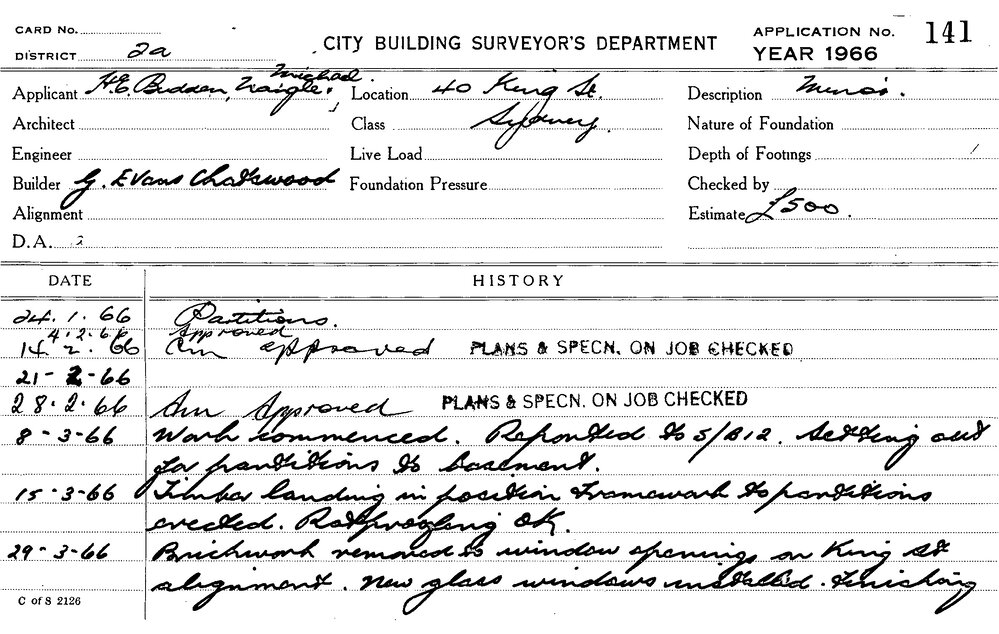 CARD No.
DISTRICT 2a
CITY BUILDING SURVEYOR'S DEPARTMENT
APPLICATION No. 141
YEAR 1966
Applicant H.E. Budden, Nangle & Michael.
Location 40 King St. Sydney.
Description Minor.
Architect
Class
Nature of Foundation
Engineer
Live Load
Depth of Footings
Builder G. Evans Chatswood
Foundation Pressure
Checked by
Alignment
Estimate £500.
D.A. 2
DATE HISTORY
24.1.66 Partitions.
4.2.66 Approved
14.2.66 approved PLANS & SPECN. ON JOB CHECKED
21-2-66
28.2.66 Approved PLANS & SPECN. ON JOB CHECKED
8-3-66 Work commenced. Reported to S/B12. Setting out
for partitions to basement.
15-3-66 Timber landing in position Framework to partitions
erected. Ratproofing OK.
29-3-66 Brickwork removed to window openings on King St
alignment. New glass windows installed. Finishing
C of S 2126